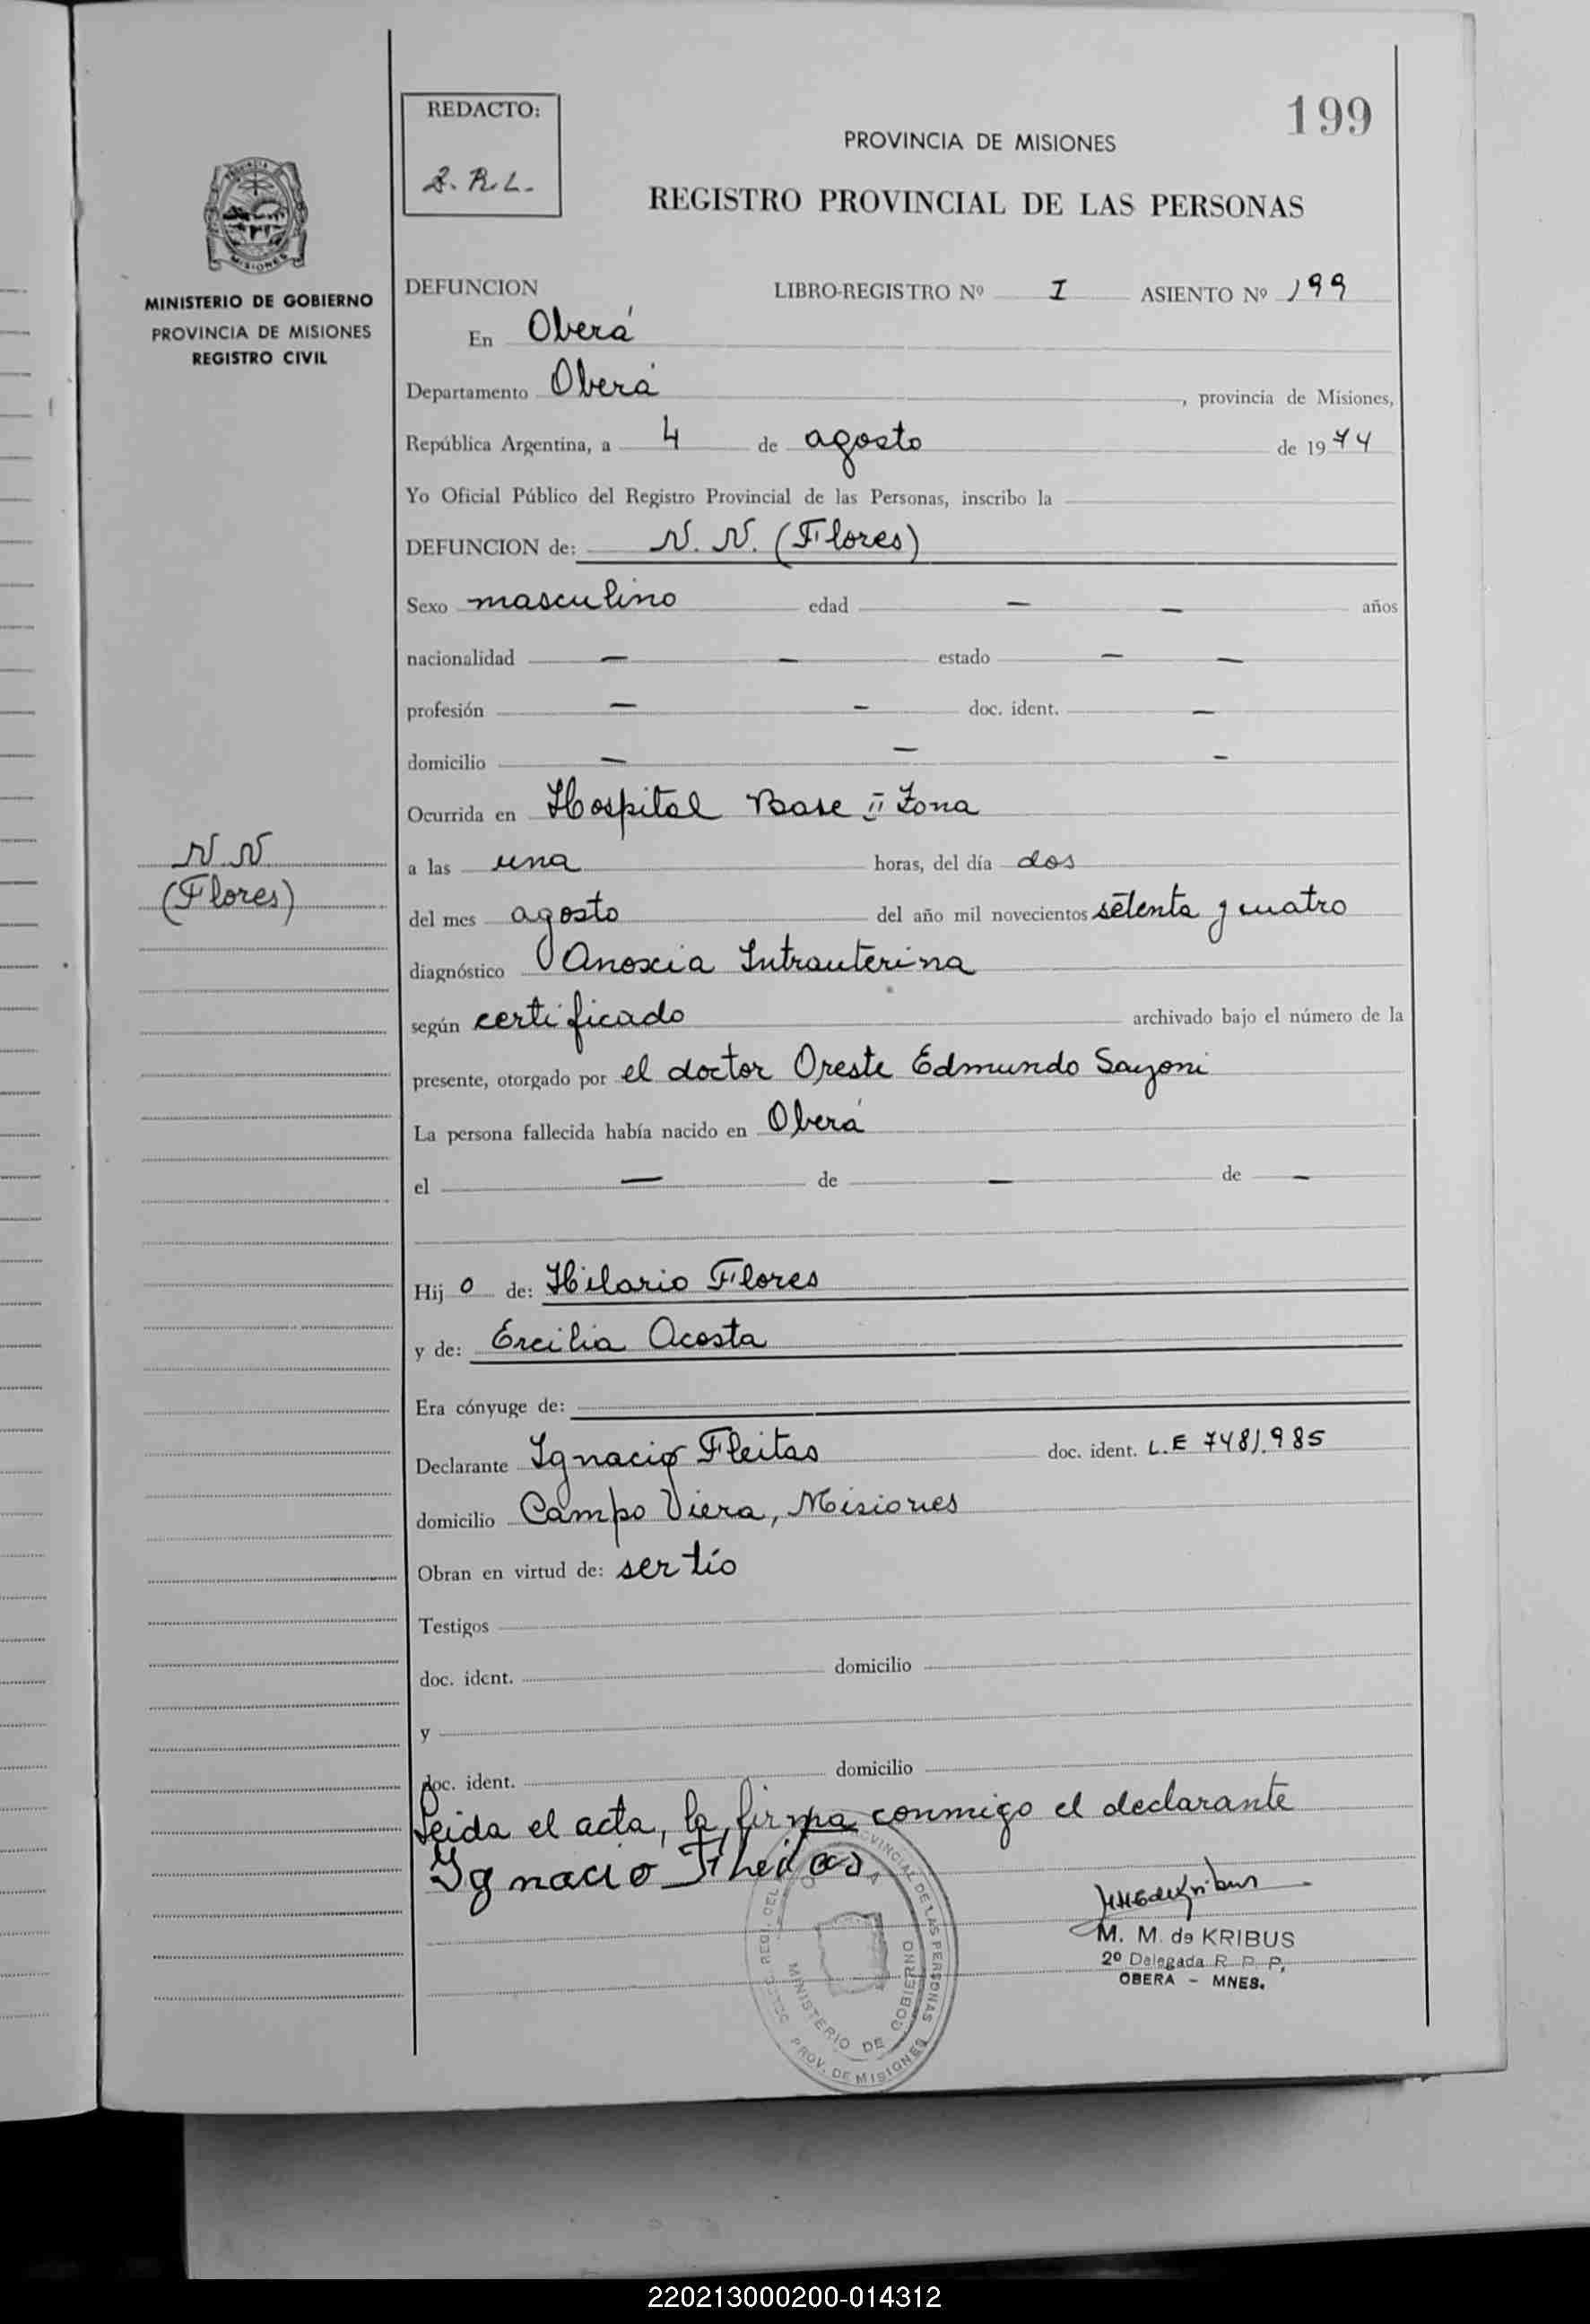 199
REDACTO:
PROVINCIA DE MISIONES
REGISTRO PROVINCIAL DE LAS PERSONAS
MISIONES
MINISTERIO DE GOBIERNO
PROVINCIA DE MISIONES
REGISTRO CIVIL
DEFUNCION LIBRO-REGISTRO Nº I ASIENTO Nº 199
En Oberá
Departamento Oberá, provincia de Misiones,
República Argentina, a 4 de agosto de 1974
Yo Oficial Público del Registro Provincial de las Personas, inscribo la
DEFUNCION de: N. N. (Flores)
Sexo masculino edad — — años
nacionalidad — — estado — —
profesión — — doc. ident. —
domicilio — — —
Ocurrida en Hospital Base II Zona
N N
(Flores)
a las una horas, del día dos
del mes agosto del año mil novecientos setenta y cuatro
diagnóstico Anoxia Intrauterina
según certificado archivado bajo el número de la
presente, otorgado por el doctor Oreste Edmundo
La persona fallecida había nacido en Oberá
el — de — de —
Hij o de: Hilario Flores
y de: Ercilia Acosta
Era cónyuge de:
Declarante Ignacio Fleitas doc. ident. L.E 7481.985
domicilio Campo Viera, Misiones
Obran en virtud de: ser tío
Testigos
doc. ident. domicilio
y
doc. ident. domicilio
Leida el acta, la firma conmigo el declarante
Ignacio
M. M. de KRIBUS
2º Delegada R. P. P.
OBERA - MNES.
PROVINCIAL DE LAS PERSONAS
MINISTERIO DE GOBIERNO
PROV. DE MISIONES
220213000200-014312